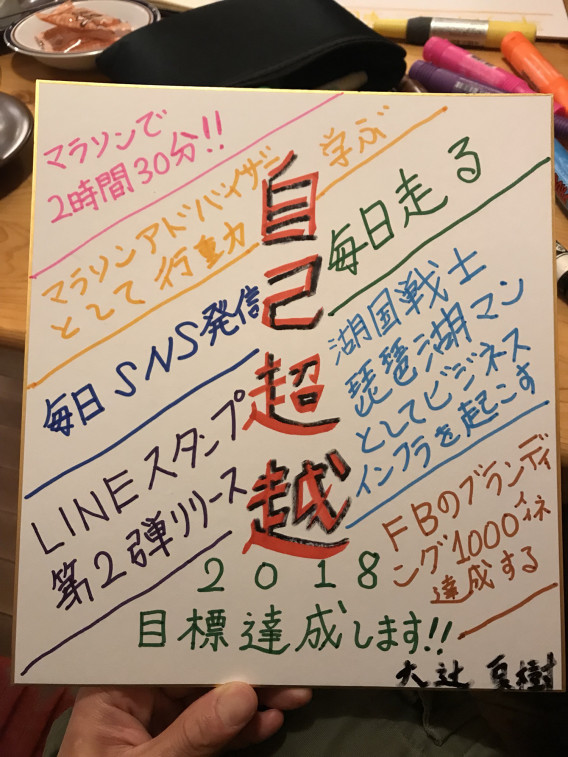 マラソンで
2時間30分!!
マラソンアドバイザー
として行動力
学ぶ
毎日走る
自己超越
毎日SNS発信
湖国戦士
琵琶湖マン
としてビジネス
インフラを起こす
LINEスタンプ
第2弾リリース
FBのブランディ
ング1000いいね
達成する
2018
目標達成します!!
大辻 夏樹